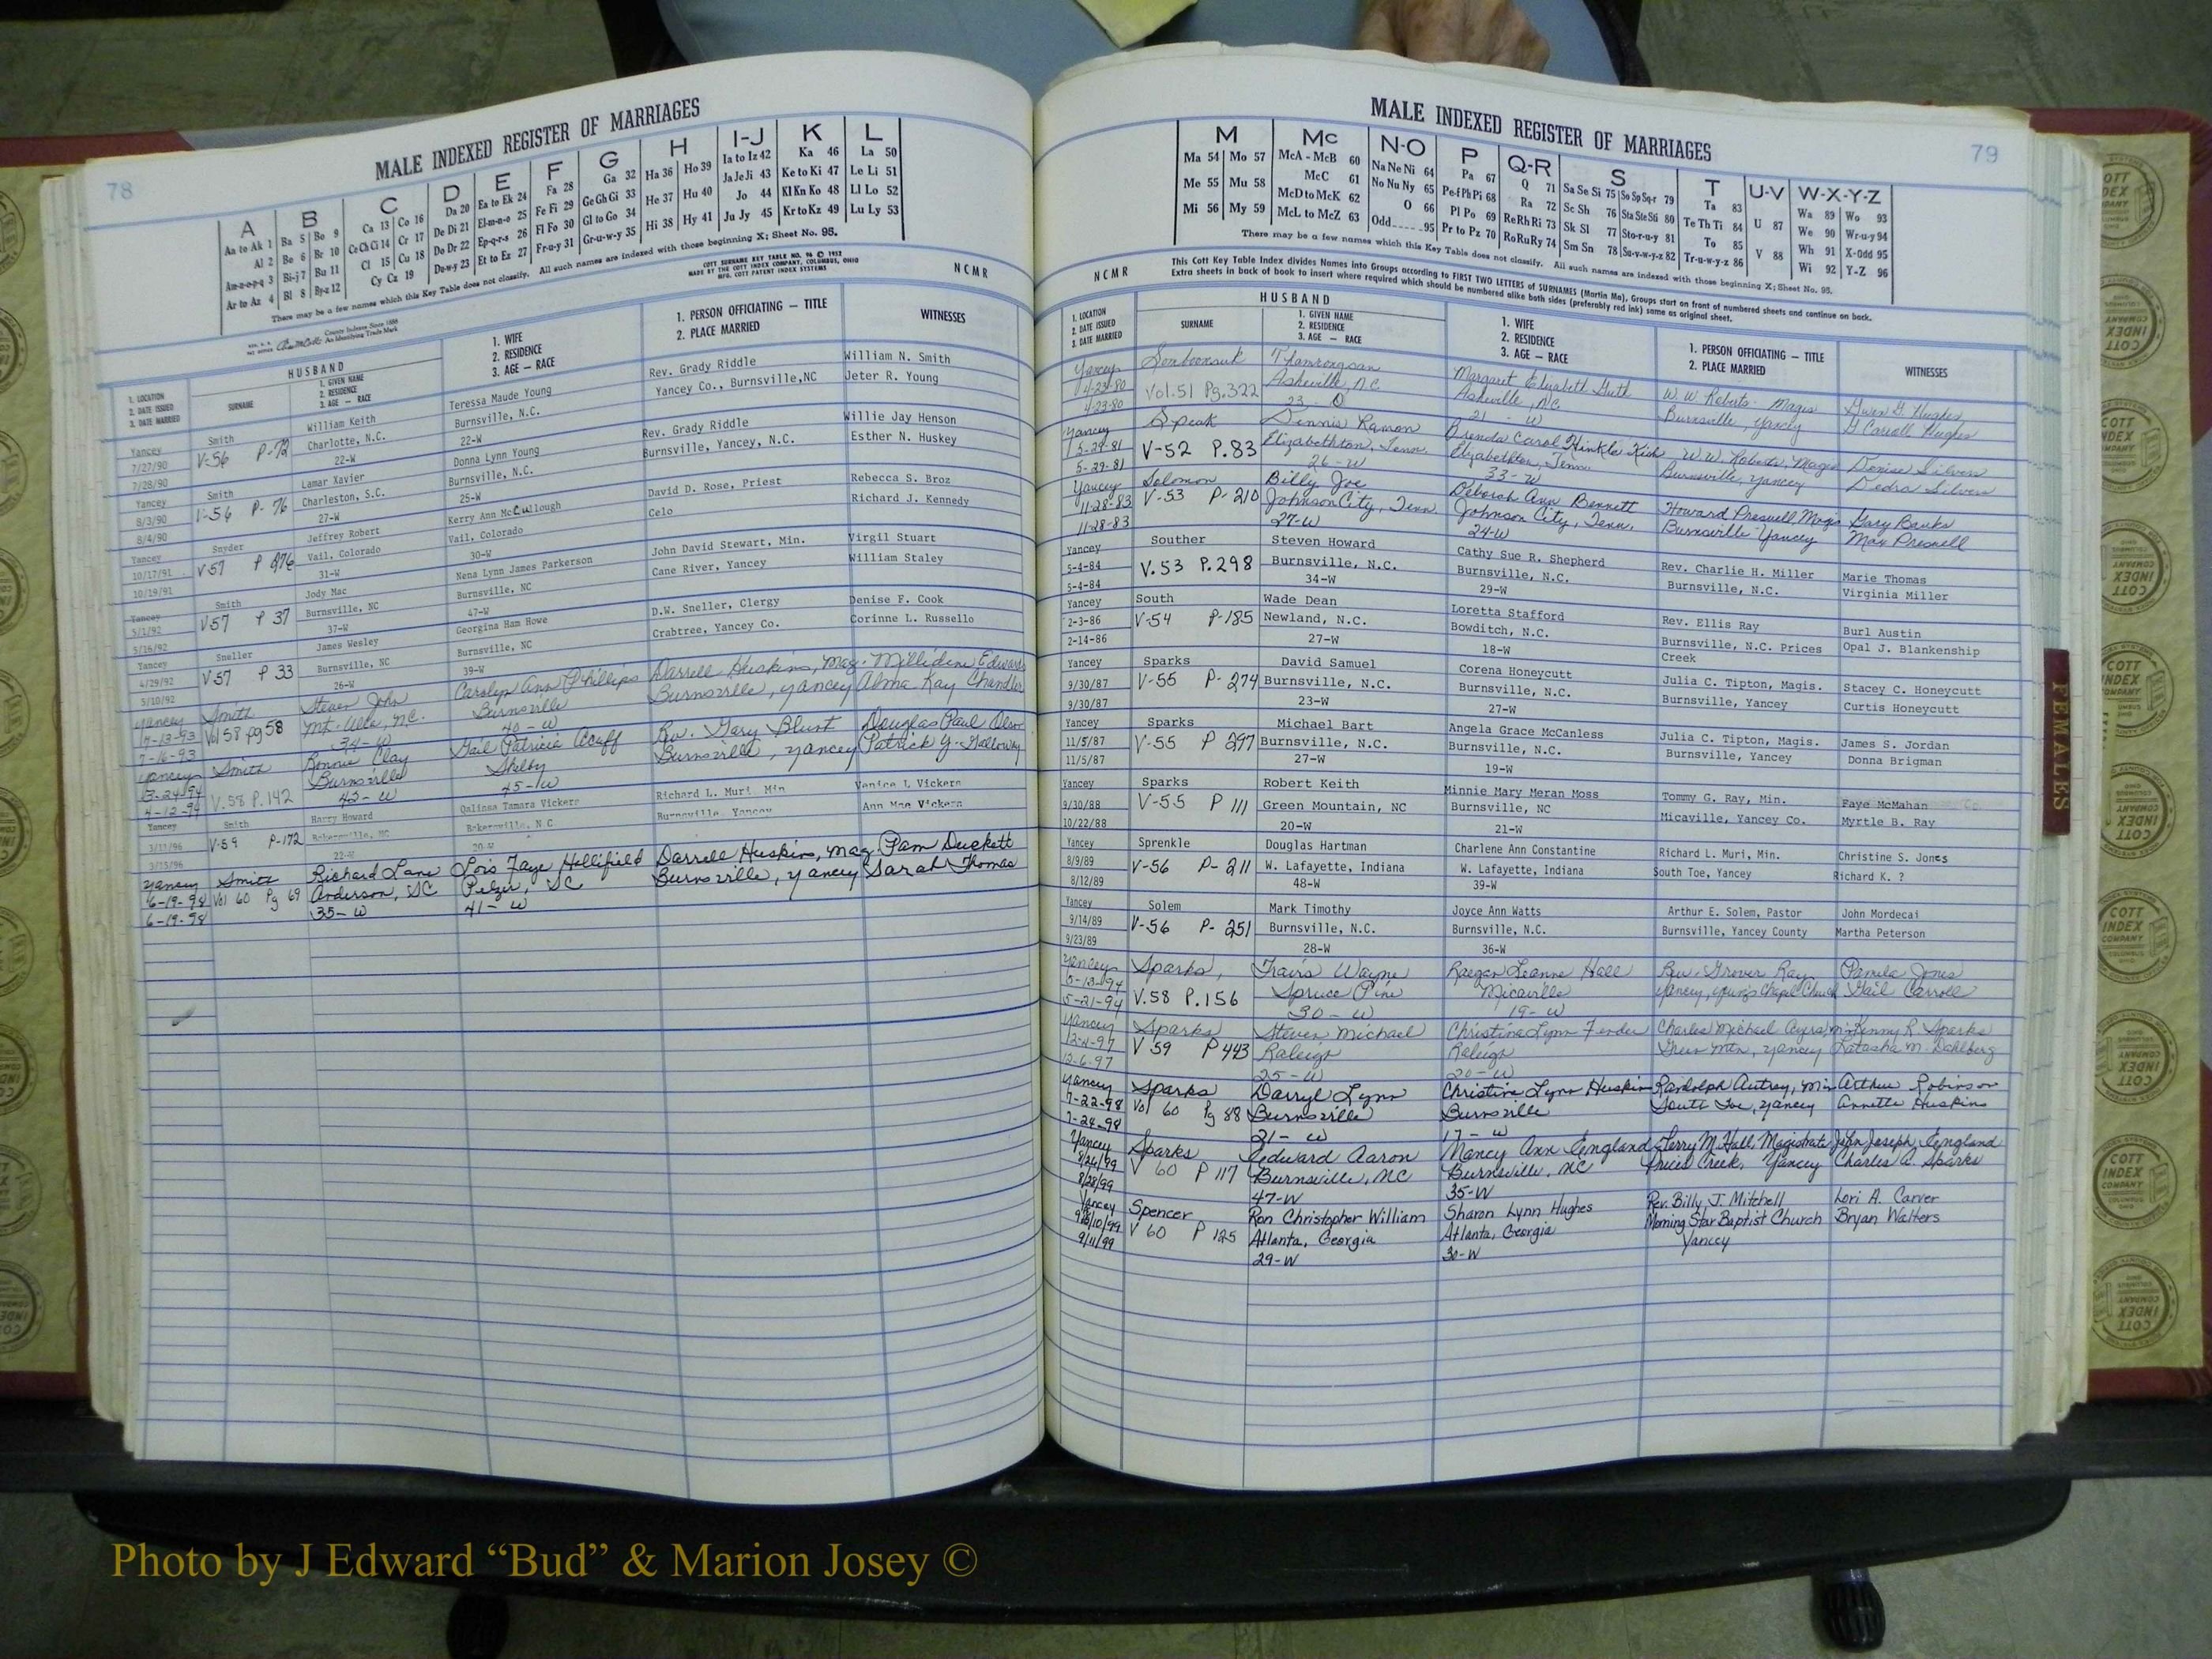 78
MALE INDEXED REGISTER OF MARRIAGES
A B C D E F G H I-J K L
Aa to Ak 1 Ba 5 Bo 9 Ca 13 Co 16 Da 20 Ea to Ek 24 Fa 28 Ga 32 Ha 36 Ho 39 Ia to Iz 42 Ka 46 La 50
Al 2 Be 6 Br 10 Ce Ch Ci 14 Cr 17 De Di 21 El-m-n-o 25 Fe Fi 29 Ge Gh Gi 33 He 37 Hu 40 Ja Je Ji 43 Ke to Ki 47 Le Li 51
Am-n-o-p-q 3 Bi-j 7 Bu 11 Cl 15 Cu 18 Do Dr 22 Ep-q-r-s 26 Fl Fo 30 Gl to Go 34 Hi 38 Hy 41 Jo 44 Kl Kn Ko 48 Ll Lo 52
Ar to Az 4 Bl 8 By-z 12 Cy Cz 19 Du-w-y 23 Et to Ez 27 Fr-u-y 31 Gr-u-w-y 35 Ju Jy 45 Kr to Kz 49 Lu Ly 53
There may be a few names which this Key Table does not classify. All such names are indexed with those beginning X; Sheet No. 95.
County Indexes Since 1888
An Identifying Trade Mark
COTT SURNAME KEY TABLE NO. 96 © 1952
MADE BY THE COTT INDEX COMPANY, COLUMBUS, OHIO
MFG. COTT PATENT INDEX SYSTEMS
NCMR
1. LOCATION
2. DATE ISSUED
3. DATE MARRIED
HUSBAND
SURNAME
1. GIVEN NAME
2. RESIDENCE
3. AGE — RACE
1. WIFE
2. RESIDENCE
3. AGE — RACE
1. PERSON OFFICIATING — TITLE
2. PLACE MARRIED
WITNESSES
Yancey Smith William Keith Teressa Maude Young Rev. Grady Riddle William N. Smith
7/27/90 V-56 P-72 Charlotte, N.C. Burnsville, N.C. Yancey Co., Burnsville,NC Jeter R. Young
7/28/90 22-W 22-W
Yancey Smith Lamar Xavier Donna Lynn Young Rev. Grady Riddle Willie Jay Henson
8/3/90 V-56 P-76 Charleston, S.C. Burnsville, N.C. Burnsville, Yancey, N.C. Esther N. Huskey
8/4/90 27-W 25-W
Yancey Snyder Jeffrey Robert Kerry Ann McCullough David D. Rose, Priest Rebecca S. Broz
10/17/91 V57 P 276 Vail, Colorado Vail, Colorado Celo Richard J. Kennedy
10/19/91 31-W 30-W
Yancey Smith Jody Mac Nena Lynn James Parkerson John David Stewart, Min. Virgil Stuart
5/1/92 V57 P 37 Burnsville, NC Burnsville, NC Cane River, Yancey William Staley
5/16/92 37-W 47-W
Yancey Sneller James Wesley Georgina Ham Howe D.W. Sneller, Clergy Denise F. Cook
4/29/92 V57 P 33 Burnsville, NC Burnsville, NC Crabtree, Yancey Co. Corinne L. Russello
5/10/92 26-W 39-W
Yancey Smith Steven John Carolyn Ann Phillips Darrell Huskins, Mag. Millidene Edwards
7-13-93 Vol 58 pg 58 Mt. Ulla, NC. Burnsville Burnsville, Yancey Alma Kay Chandler
7-16-93 34-W 40-W
Yancey Smith Ronnie Clay Gail Patricia Acuff Rev. Gary Blunt Douglas Paul Olson
3-24-94 V.58 P.142 Burnsville Shelby Burnsville, Yancey Patrick Y. Galloway
4-12-94 43-W 45-W
Yancey Smith Harry Howard Qalissa Tamara Vickers Richard L. Muri, Min Venice L Vickers
3/11/96 V-59 P-172 Bakersville, NC Bakersville, N.C Burnsville, Yancey Ann Mae Vickers
3/15/96 22-W 20-W
Yancey Smith Richard Lane Lois Faye Hollifield Darrell Huskins, Mag. Pam Duckett
6-19-98 Vol 60 Pg 69 Anderson, SC Pelzer, SC Burnsville, Yancey Sarah Thomas
6-19-98 35-W 41-W
79
MALE INDEXED REGISTER OF MARRIAGES
M Mc N-O P Q-R S T U-V W-X-Y-Z
Ma 54 Mo 57 McA - McB 60 Na Ne Ni 64 Pa 67 Q 71 Sa Se Si 75 So Sp Sq-r 79 Ta 83 U 87 Wa 89 Wo 93
Me 55 Mu 58 McC 61 No Nu Ny 65 Pe-f Ph Pi 68 Ra 72 Sc Sh 76 Sta Ste Sti 80 Te Th Ti 84 V 88 We 90 Wr-u-y 94
Mi 56 My 59 McD to McK 62 O 66 Pl Po 69 Re Rh Ri 73 Sk Sl 77 Sto-r-u-y 81 To 85 Wh 91 X-Odd 95
McL to McZ 63 Odd 95 Pr to Pz 70 Ro Ru Ry 74 Sm Sn 78 Su-v-w-y-z 82 Tr-u-w-y-z 86 Wi 92 Y-Z 96
There may be a few names which this Key Table does not classify. All such names are indexed with those beginning X; Sheet No. 95.
NCMR
This Cott Key Table Index divides Names into Groups according to FIRST TWO LETTERS of SURNAMES (Martin Ma), Groups start on front of numbered sheets and continue on back.
Extra sheets in back of book to insert where required which should be numbered alike both sides (preferably red ink) same as original sheet.
1. LOCATION
2. DATE ISSUED
3. DATE MARRIED
HUSBAND
SURNAME
1. GIVEN NAME
2. RESIDENCE
3. AGE — RACE
1. WIFE
2. RESIDENCE
3. AGE — RACE
1. PERSON OFFICIATING — TITLE
2. PLACE MARRIED
WITNESSES
Yancey Somboonsuk Thamrongsan Margaret Elizabeth Guth W.W. Roberts Magis Gwen G. Hughes
4-23-80 Vol.51 Pg.322 Asheville, N.C. Asheville, NC Burnsville, Yancey G Carroll Hughes
4-23-80 23-O 21-W
Yancey Speak Dennis Ramon Brenda Carol Hinkle Kirk W.W. Roberts, Magis Denise Silvers
5-29-81 V-52 P.83 Elizabethton, Tenn. Elizabethton, Tenn Burnsville, Yancey Dedra Silvers
5-29-81 26-W 33-W
Yancey Solomon Billy Joe Deborah Ann Bennett Howard Presnell, Magis Gary Banks
11-28-83 V-53 P-210 Johnson City, Tenn. Johnson City, Tenn. Burnsville Yancey Max Presnell
11-28-83 27-W 24-W
Yancey Souther Steven Howard Cathy Sue R. Shepherd Rev. Charlie H. Miller Marie Thomas
5-4-84 V.53 P.298 Burnsville, N.C. Burnsville, N.C. Burnsville, N.C. Virginia Miller
5-4-84 34-W 29-W
Yancey South Wade Dean Loretta Stafford Rev. Ellis Ray Burl Austin
2-3-86 V-54 P-185 Newland, N.C. Bowditch, N.C. Burnsville, N.C. Prices Opal J. Blankenship
2-14-86 27-W 18-W Creek
Yancey Sparks David Samuel Corena Honeycutt Julia C. Tipton, Magis. Stacey C. Honeycutt
9/30/87 V-55 P-274 Burnsville, N.C. Burnsville, N.C. Burnsville, Yancey Curtis Honeycutt
9/30/87 23-W 27-W
Yancey Sparks Michael Bart Angela Grace McCanless Julia C. Tipton, Magis. James S. Jordan
11/5/87 V-55 P 297 Burnsville, N.C. Burnsville, N.C. Burnsville, Yancey Donna Brigman
11/5/87 27-W 19-W
Yancey Sparks Robert Keith Minnie Mary Meran Moss Tommy G. Ray, Min. Faye McMahan
9/30/88 V-55 P 111 Green Mountain, NC Burnsville, NC Micaville, Yancey Co. Myrtle B. Ray
10/22/88 20-W 21-W
Yancey Sprenkle Douglas Hartman Charlene Ann Constantine Richard L. Muri, Min. Christine S. Jones
8/9/89 V-56 P-211 W. Lafayette, Indiana W. Lafayette, Indiana South Toe, Yancey Richard K. ?
8/12/89 48-W 39-W
Yancey Solem Mark Timothy Joyce Ann Watts Arthur E. Solem, Pastor John Mordecai
9/14/89 V-56 P-251 Burnsville, N.C. Burnsville, N.C. Burnsville, Yancey County Martha Peterson
9/23/89 28-W 36-W
Yancey Sparks, Travis Wayne Raegan Leanne Hall Rev. Grover Ray Pamela Jones
5-13-94 V.58 P.156 Spruce Pine Micaville Yancey, Young's Chapel Church Gail Carroll
5-21-94 30-W 19-W
Yancey Sparks Steven Michael Christina Lynn Fender Charles Michael Ayers, min Kenny R. Sparks
12-4-97 V 59 P 443 Raleigh Raleigh Green Mtn, Yancey Latasha M. Dahlberg
12-6-97 25-W 20-W
Yancey Sparks Darryl Lynn Christine Lynn Huskins Randolph Autrey, Min Arthur Robinson
7-22-98 Vol 60 Pg 88 Burnsville Burnsville South Toe, Yancey Annette Huskins
7-24-98 21-W 17-W
Yancey Sparks Edward Aaron Nancy Ann England Terry M. Hall, Magistrate John Joseph England
8/26/99 V 60 P 117 Burnsville, NC Burnsville, NC Prices Creek, Yancey Charles A. Sparks
8/28/99 47-W 35-W
Yancey Spencer Ron Christopher William Sharon Lynn Hughes Rev. Billy J. Mitchell Lori A. Carver
9/10/99 V 60 P 125 Atlanta, Georgia Atlanta, Georgia Morning Star Baptist Church Bryan Walters
9/11/99 29-W 30-W Yancey
FEMALES
COTT
INDEX
COMPANY
Photo by J Edward “Bud” & Marion Josey ©